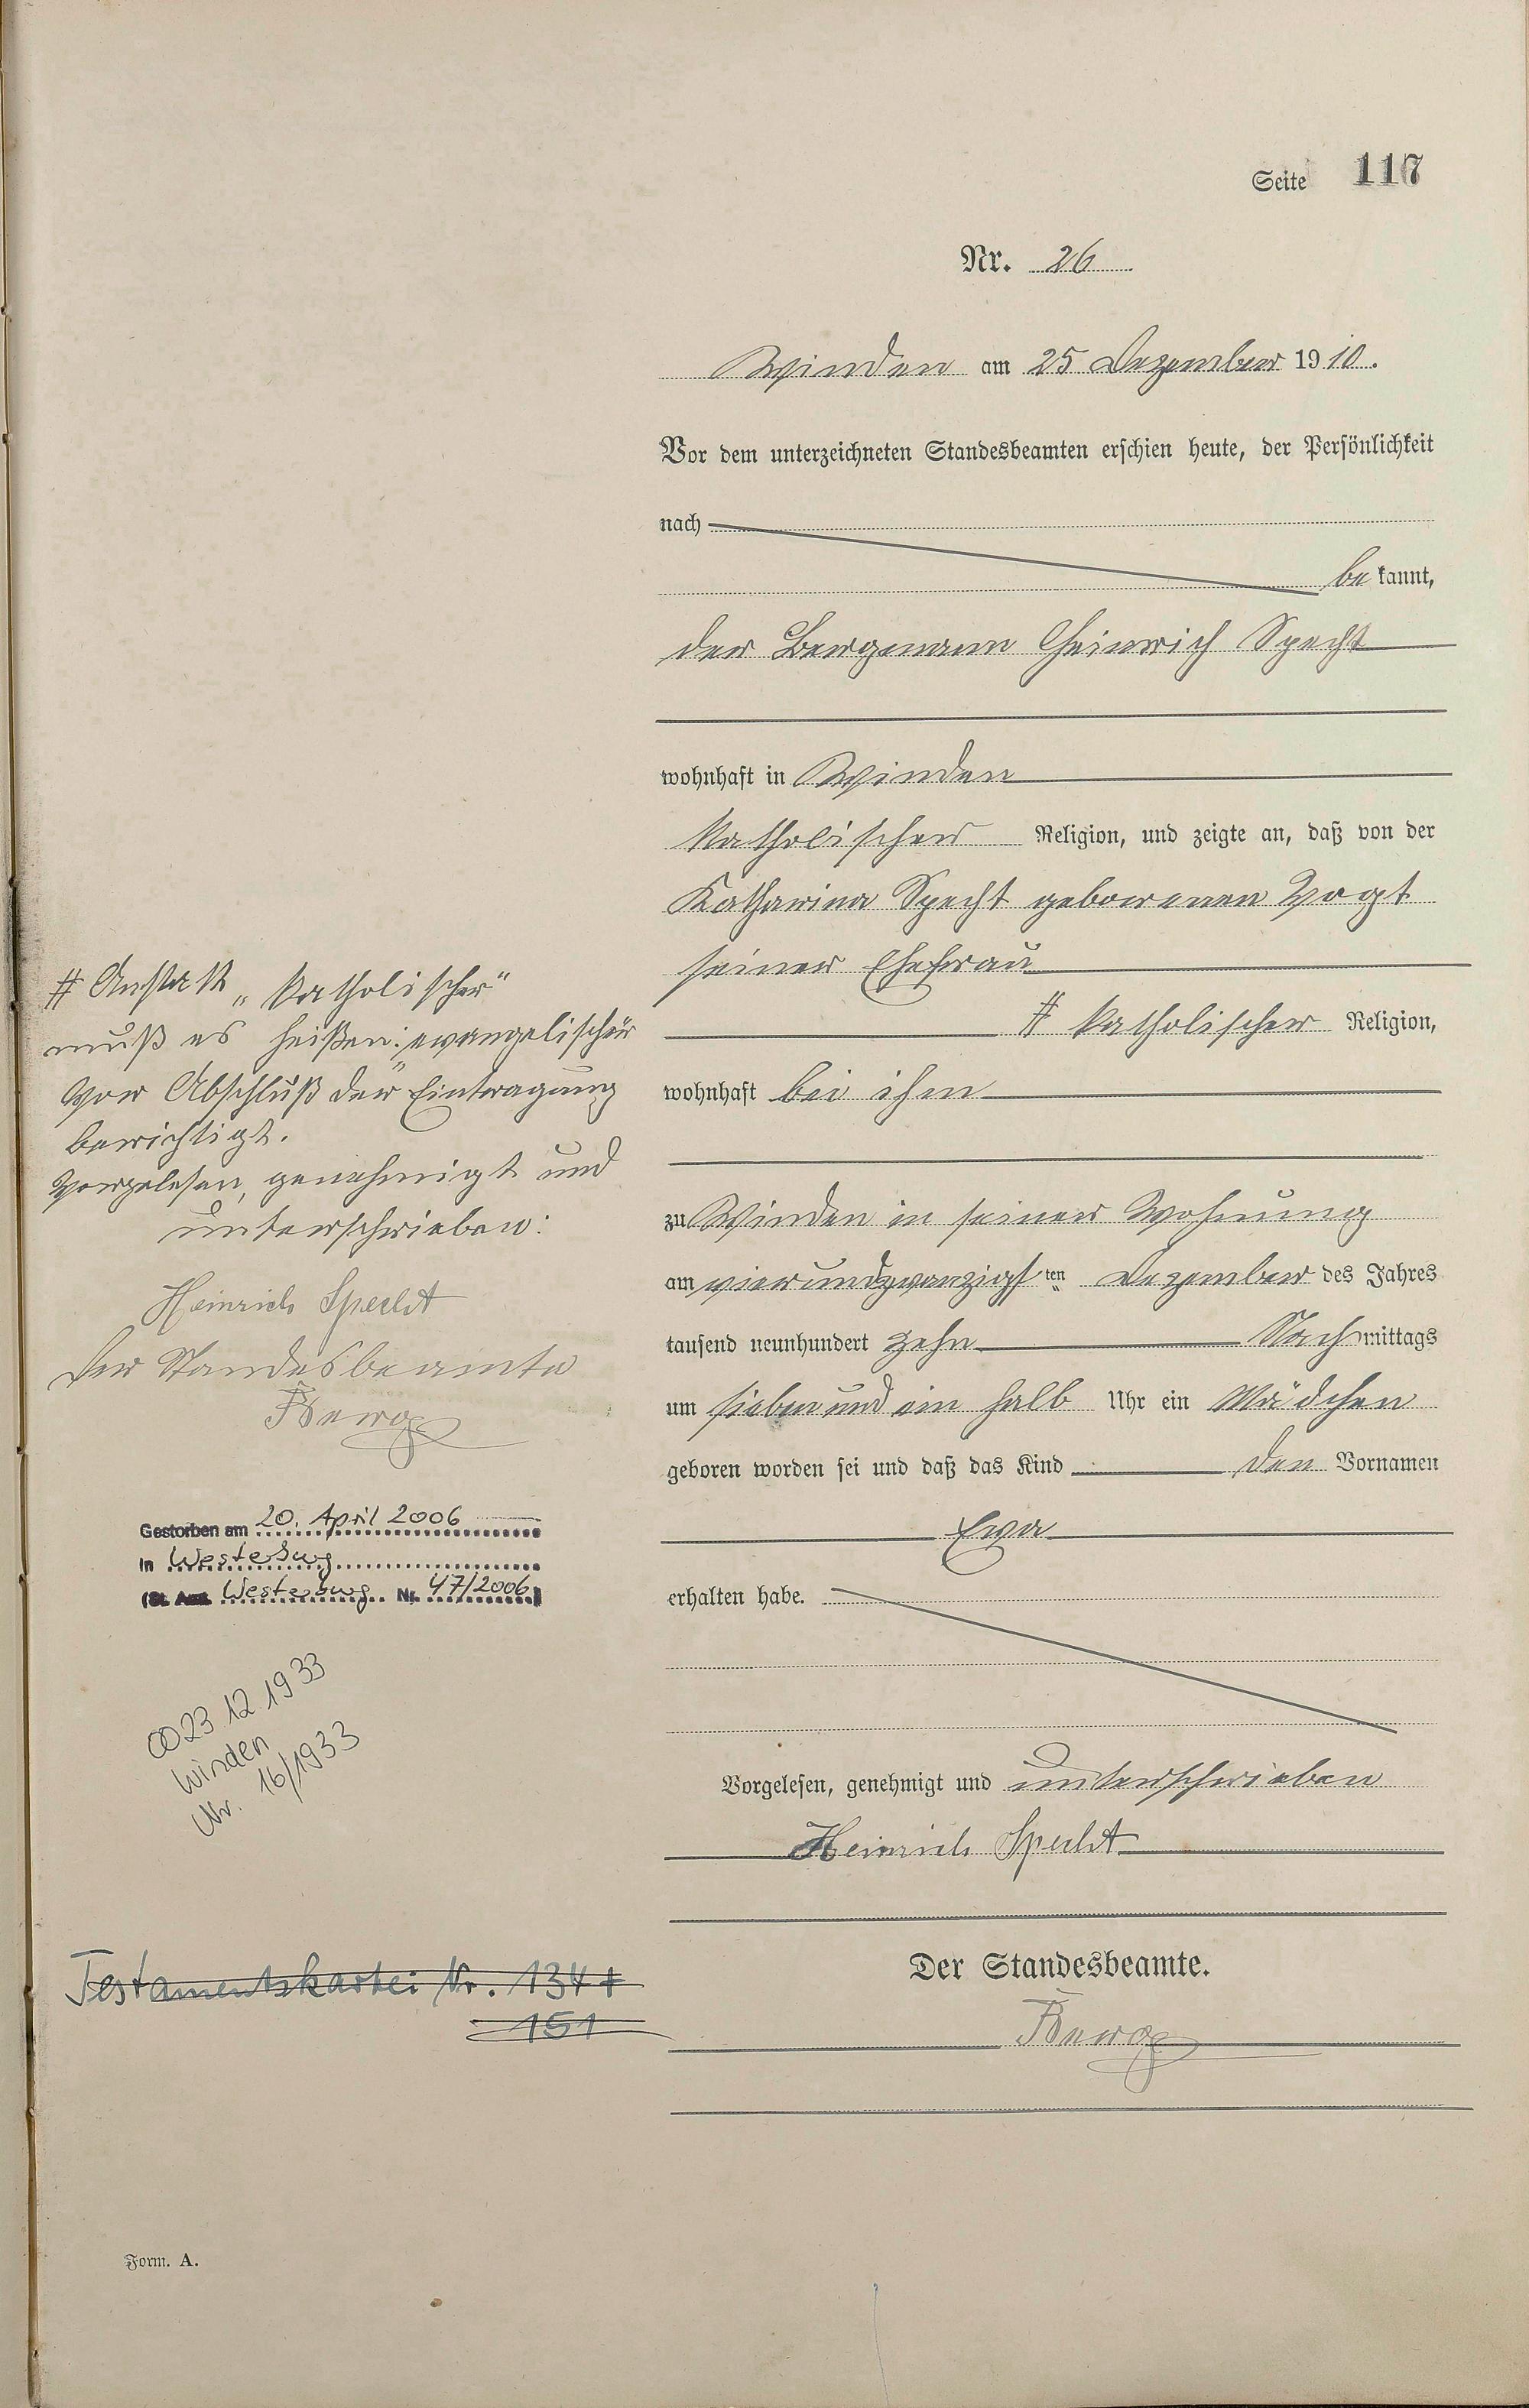 Seite 117
Nr. 26
Winden am 25 Dezember 1910.
Vor dem unterzeichneten Standesbeamten erschien heute, der Persönlichkeit
nach
bekannt,
der Bergmann Heinrich Specht
wohnhaft in Winden
katholischer Religion, und zeigte an, daß von der
Katharina Specht geborenen Vogt
seiner Ehefrau
# katholischer Religion,
wohnhaft bei ihm
zu Winden in seiner Wohnung
am vierundzwanzigsten Dezember des Jahres
tausend neunhundert zehn Nachmittags
um sieben und ein halb Uhr ein Mädchen
geboren worden sei und daß das Kind den Vornamen
Eva
erhalten habe.
Vorgelesen, genehmigt und unterschrieben
Heinrich Specht
Der Standesbeamte.
# Anstatt „katholischer"
muß es heißen: „evangelischer"
Vor Abschluß der Eintragung
berichtigt.
Vorgelesen, genehmigt und
unterschrieben:
Heinrich Specht
Der Standesbeamte
Gestorben am 20. April 2006
in Westerburg
(St. Amt Westerburg Nr. 47/2006)
∞ 23 12 1933
Winden
Nr. 16/1933
Testamentskartei Nr. 134 +
151
Form. A.